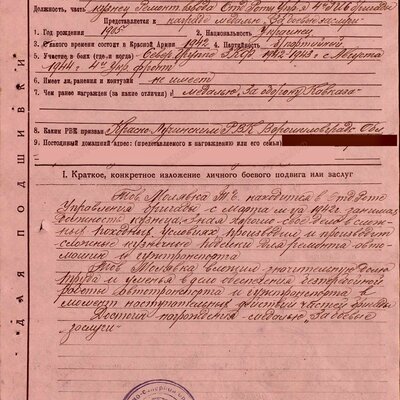 Должность, часть кузнец Ремонт взвода Отд Роты Упр-я 4 бригады
Представляется к награде медалью "За боевые заслуги"
1. Год рождения 1905 2. Национальность Украинец
3. С какого времени состоит в Красной Армии 1942 4. Партийность б/партийный
5. Участие в боях (где и когда) 1942 1943 г с Августа
1944 г 4ый Укр фронт
6. Имеет ли ранения и контузии не имеет
7. Чем ранее награжден (за какие отличия) медалью "За оборону Кавказа"
8. Каким РВК призван Красно-Лучинским РВК Ворошиловградс Обл
9. Постоянный домашний адрес: (представляемого к награждению или его семьи)
I. Краткое, конкретное изложение личного боевого подвига или заслуг
Тов. Молявка находится в отд Роте
Управления бригады с марта м-ца 1942 г. занимая
должность кузнеца, зная хорошо свое дело в слож-
ных походных условиях производил и производит
сложные кузнечные поделки для ремонта авто-
машин и гужтранспорта
Тов Молявка вложил значительную долю
труда и уменья в дело обеспечения безаварийной
работы автотранспорта и гужтранспорта в
момент наступательных действий частей бригады
Достоин награждения медалью "За боевые
заслуги"
ДЛЯ ПОДШИВКИ